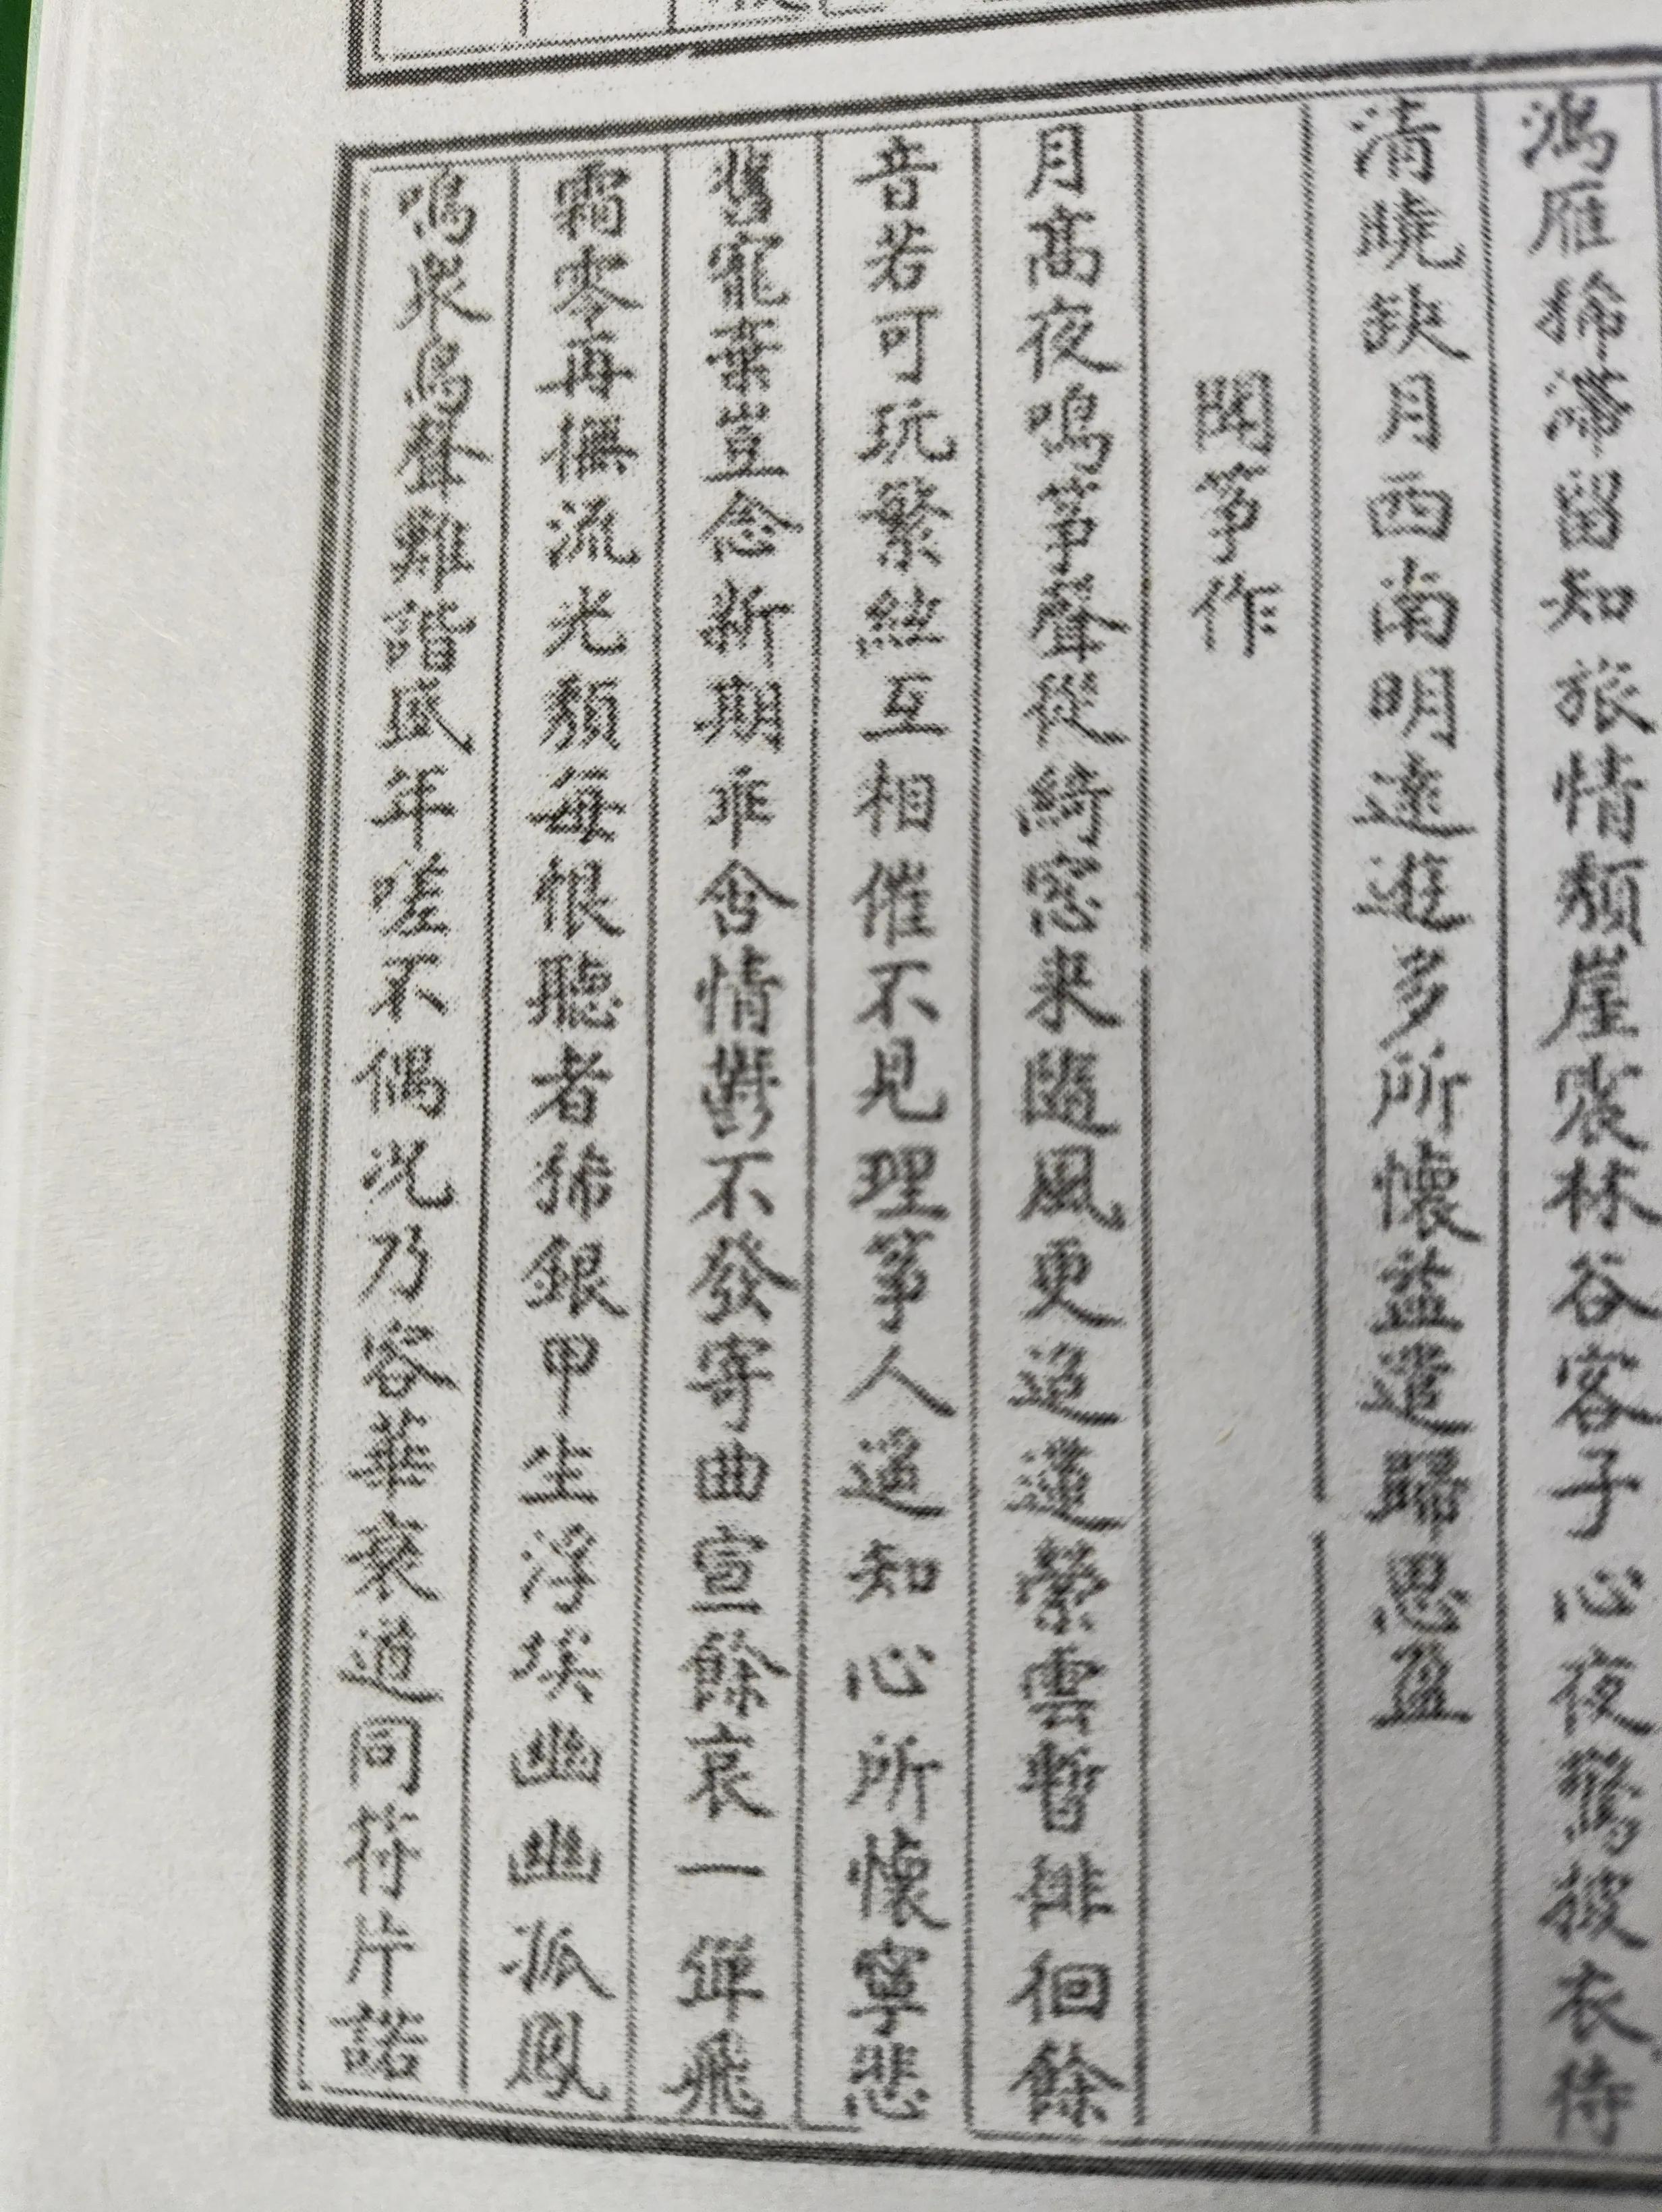 鴻雁稀滯留知旅情頹崖衰林谷客子心夜驚披衣待
清曉缺月西南明達遊多所懷益遣歸思盈
聞箏作
月高夜鳴箏聲從綺窓来隨風更迢遰縈雲暫徘徊餘
音若可玩繁絃互相催不見理箏人遥知心所懷寧悲
舊寵棄豈念新期乖含情鬱不發寄曲宣餘哀一彈飛
霜零再撫流光頹每恨聽者稀銀甲生浮埃幽幽孤鳳
鳴衆鳥聲難諧盛年嗟不偶况乃容華衰道同符片諾